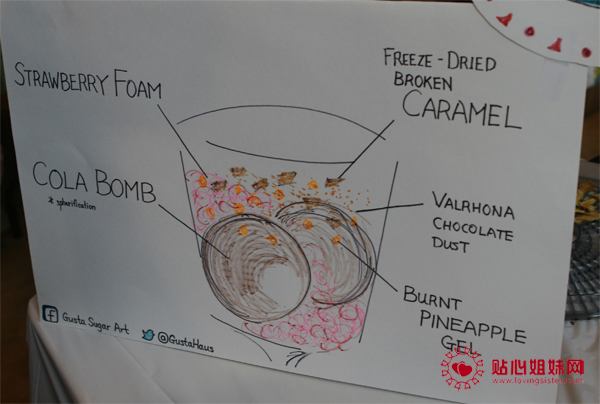 STRAWBERRY FOAM
FREEZE-DRIED
BROKEN
CARAMEL
COLA BOMB
* spherification
VALRHONA
CHOCOLATE
DUST
BURNT
PINEAPPLE
GEL
f Gusta Sugar Art
@GustaHaus
贴心姐妹网
www.lovingsister.com